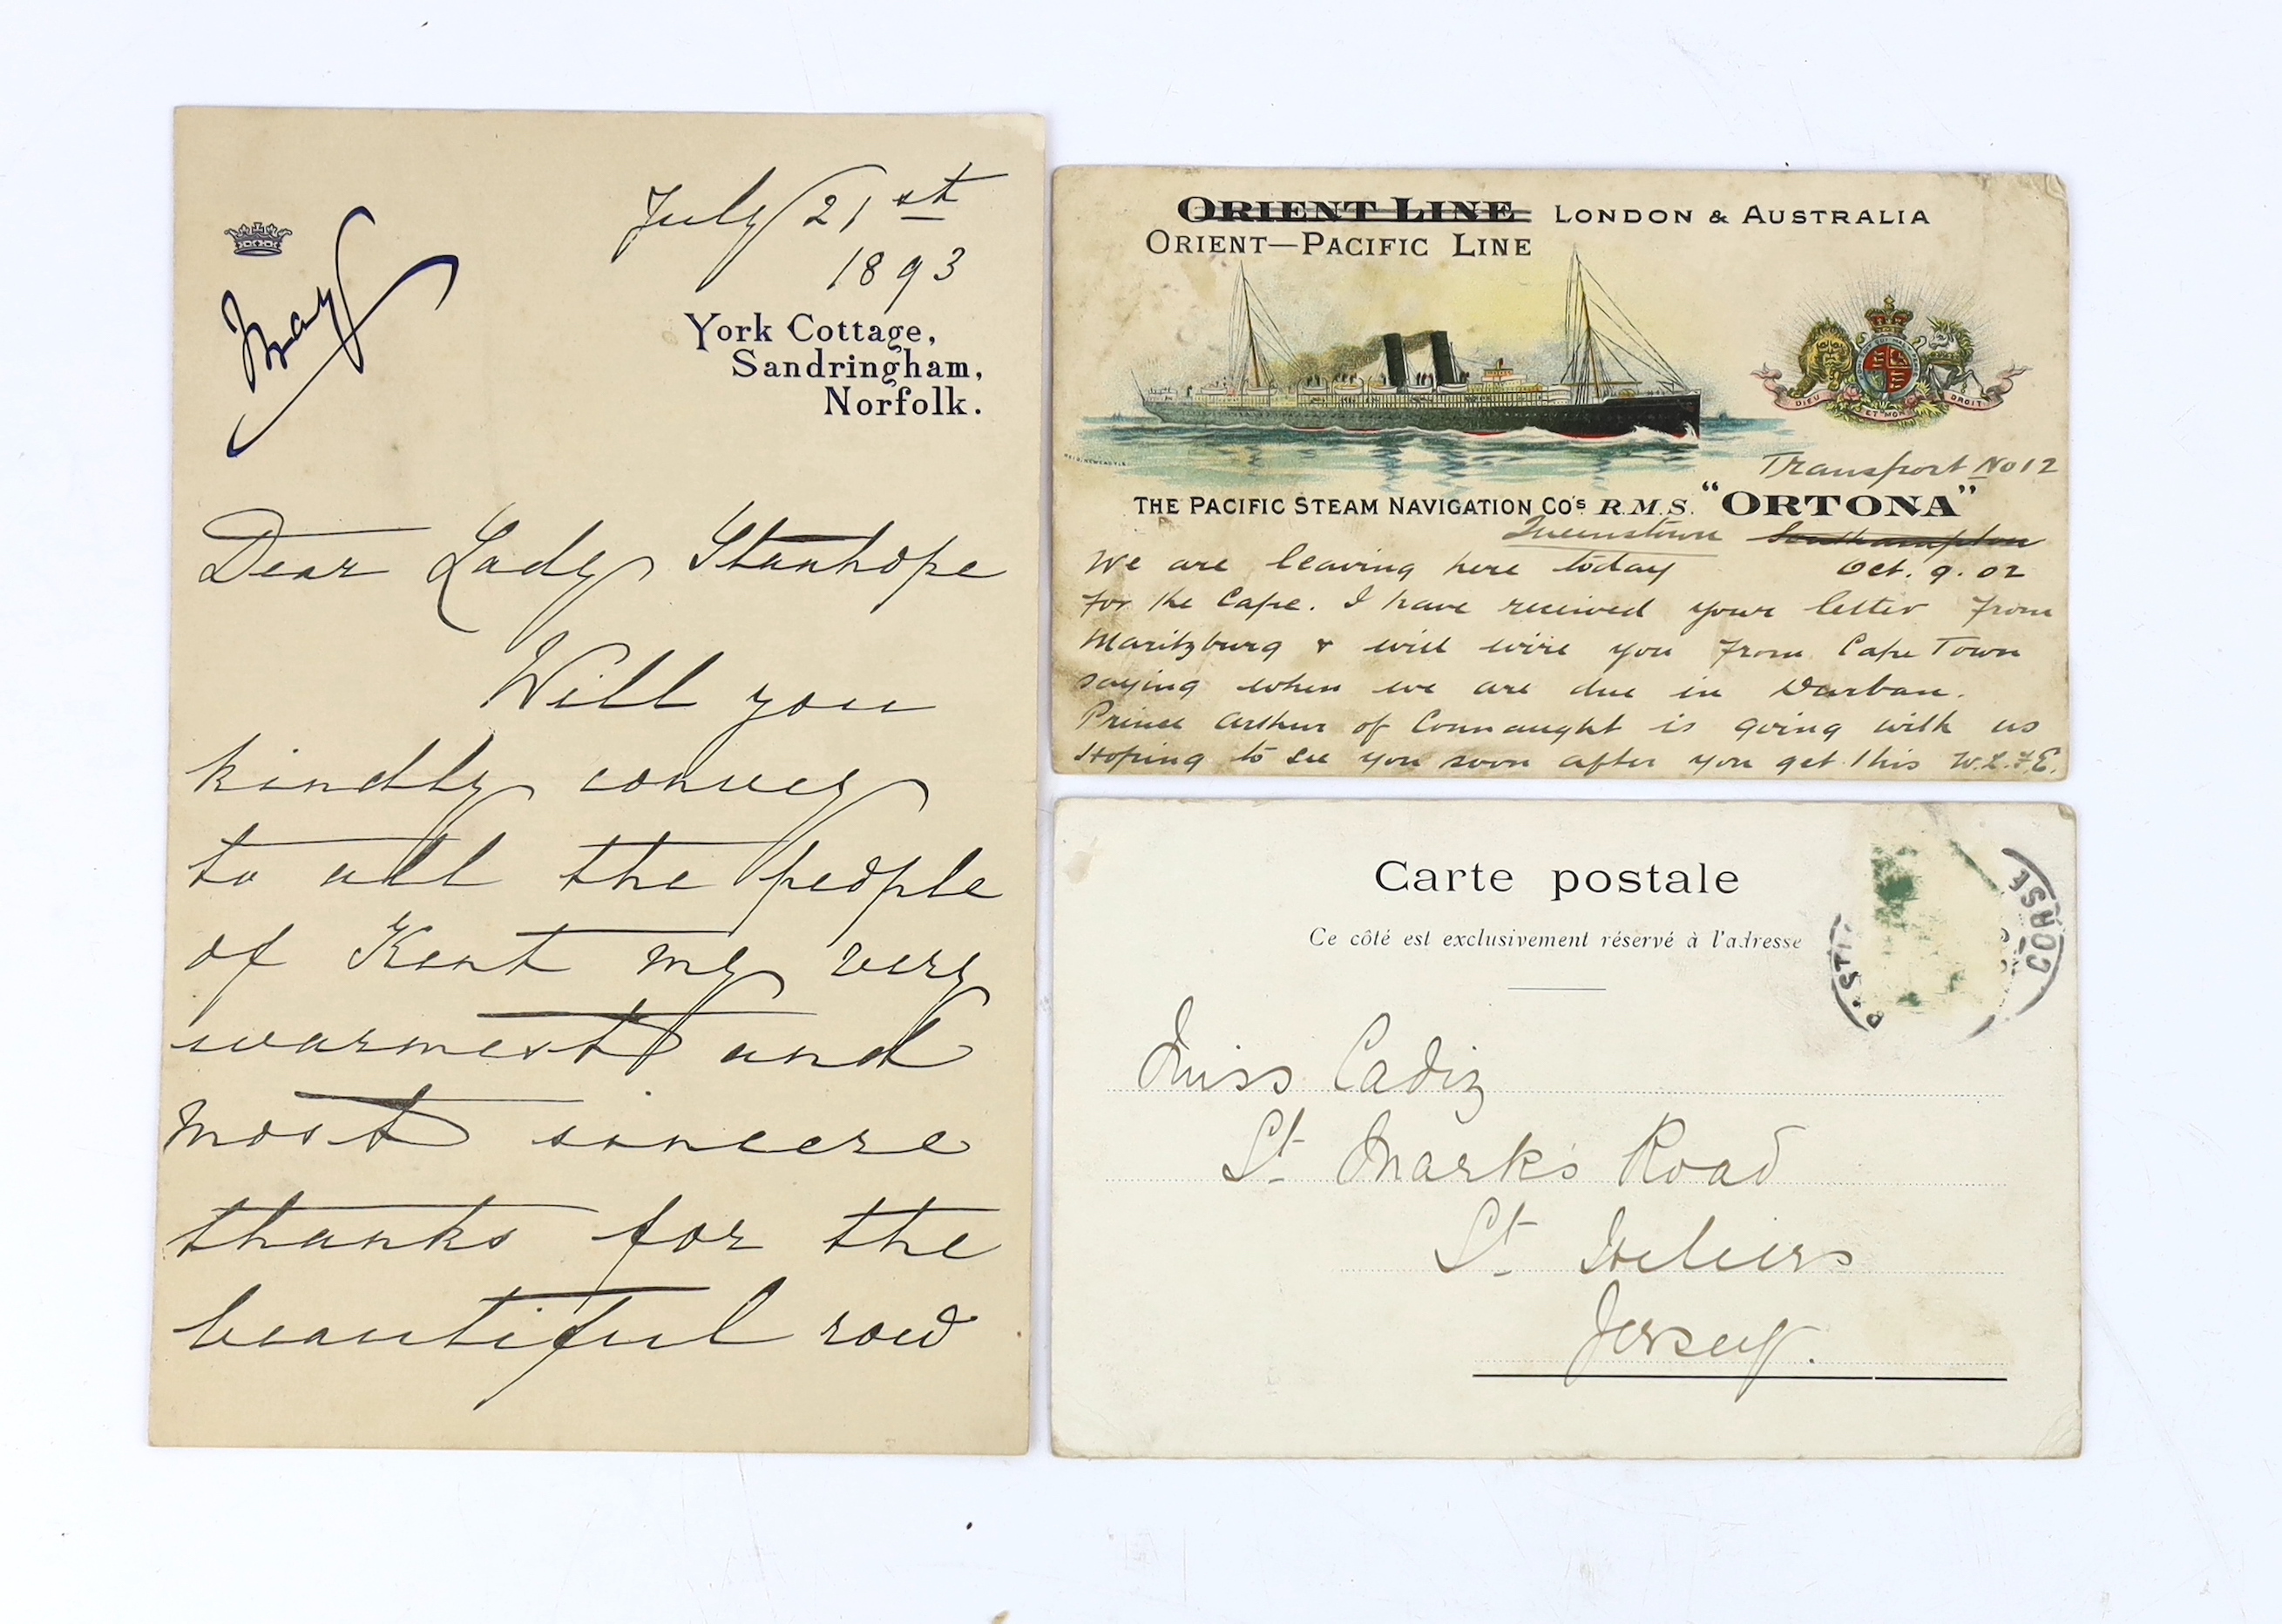 July 21st
1893
May
York Cottage,
Sandringham,
Norfolk.
Dear Lady Stanhope
Will you
kindly convey
to all the people
of Kent my very
warmest and
most sincere
thanks for the
beautiful row
ORIENT LINE LONDON & AUSTRALIA
ORIENT—PACIFIC LINE
DIEU ET MON DROIT
Transport No 12
THE PACIFIC STEAM NAVIGATION CO'S R.M.S. "ORTONA"
Queenstown Southampton
We are leaving here today Oct. 9. 02
for the Cape. I have received your letter from
Maritzburg & will wire you from Cape Town
saying when we are due in Durban.
Prince Arthur of Connaught is going with us
Hoping to see you soon after you get this W.L.F.E.
Carte postale
Ce côté est exclusivement réservé à l'adresse
CORSE
Miss Cadiz
St Mark's Road
St Heliers
Jersey.